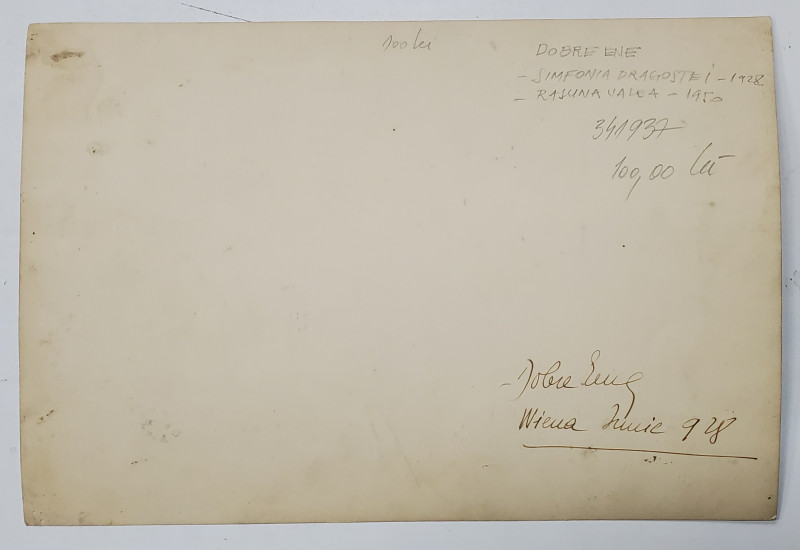 100 lei
DOBRE ENE
- SIMFONIA DRAGOSTEI - 1928
- RASUNA VALEA - 1950
341937
100,00 lei
- Dobre Ene
Wiena Iunie 928